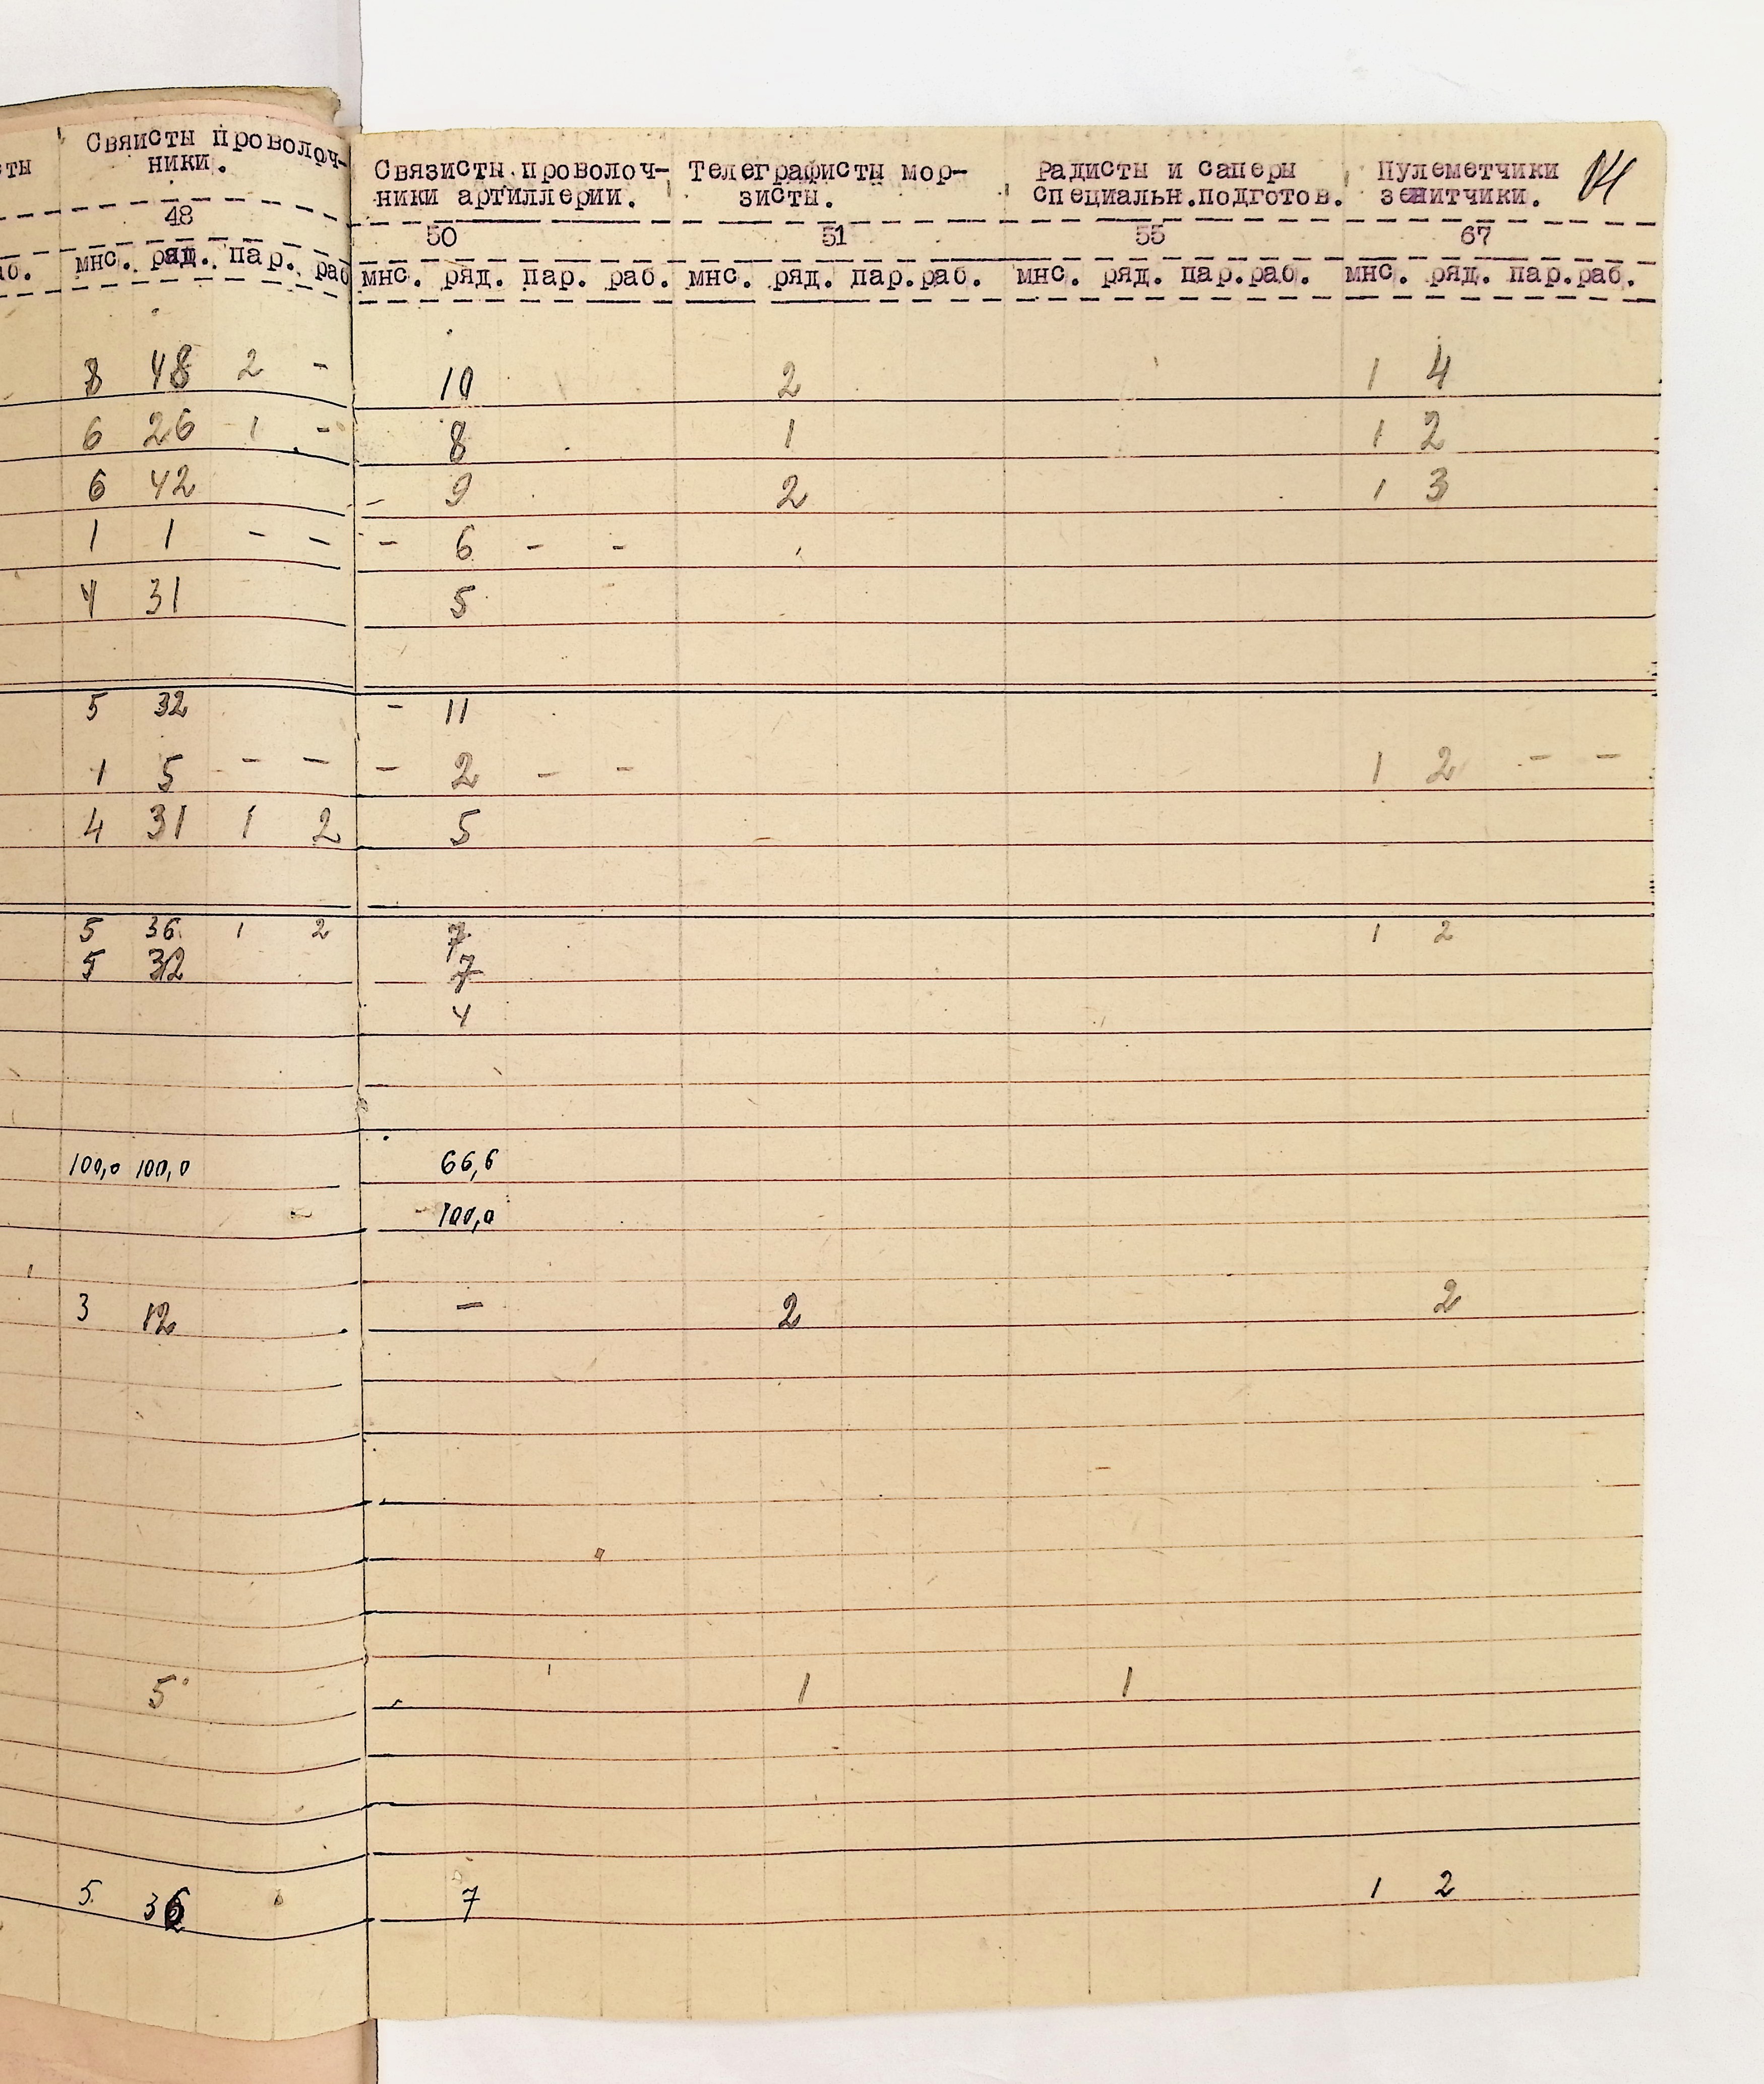 сты Свяисты проволоч- Связисты проволоч- Телеграфисты мор- Радисты и саперы Пулеметчики
ники. ники артиллерии. зисты. специальн.подготов. зенитчики.
48 50 51 55 67
аб. мнс. ряд. пар. раб мнс. ряд. пар. раб. мнс. ряд. пар.раб. мнс. ряд. пар.раб. мнс. ряд. пар.раб.
8 48 2 - 10 2 1 4
6 26 1 - 8 1 1 2
6 42 - 9 2 1 3
1 1 - - - 6 - -
4 31 5
5 32 - 11
1 5 - - - 2 - - 1 2 - -
4 31 1 2 5
5 36 1 2 7 1 2
5 32 7
4
100,0 100,0 66,6
100,0
3 12 - 2 2
5 1 1
5 36 7 1 2